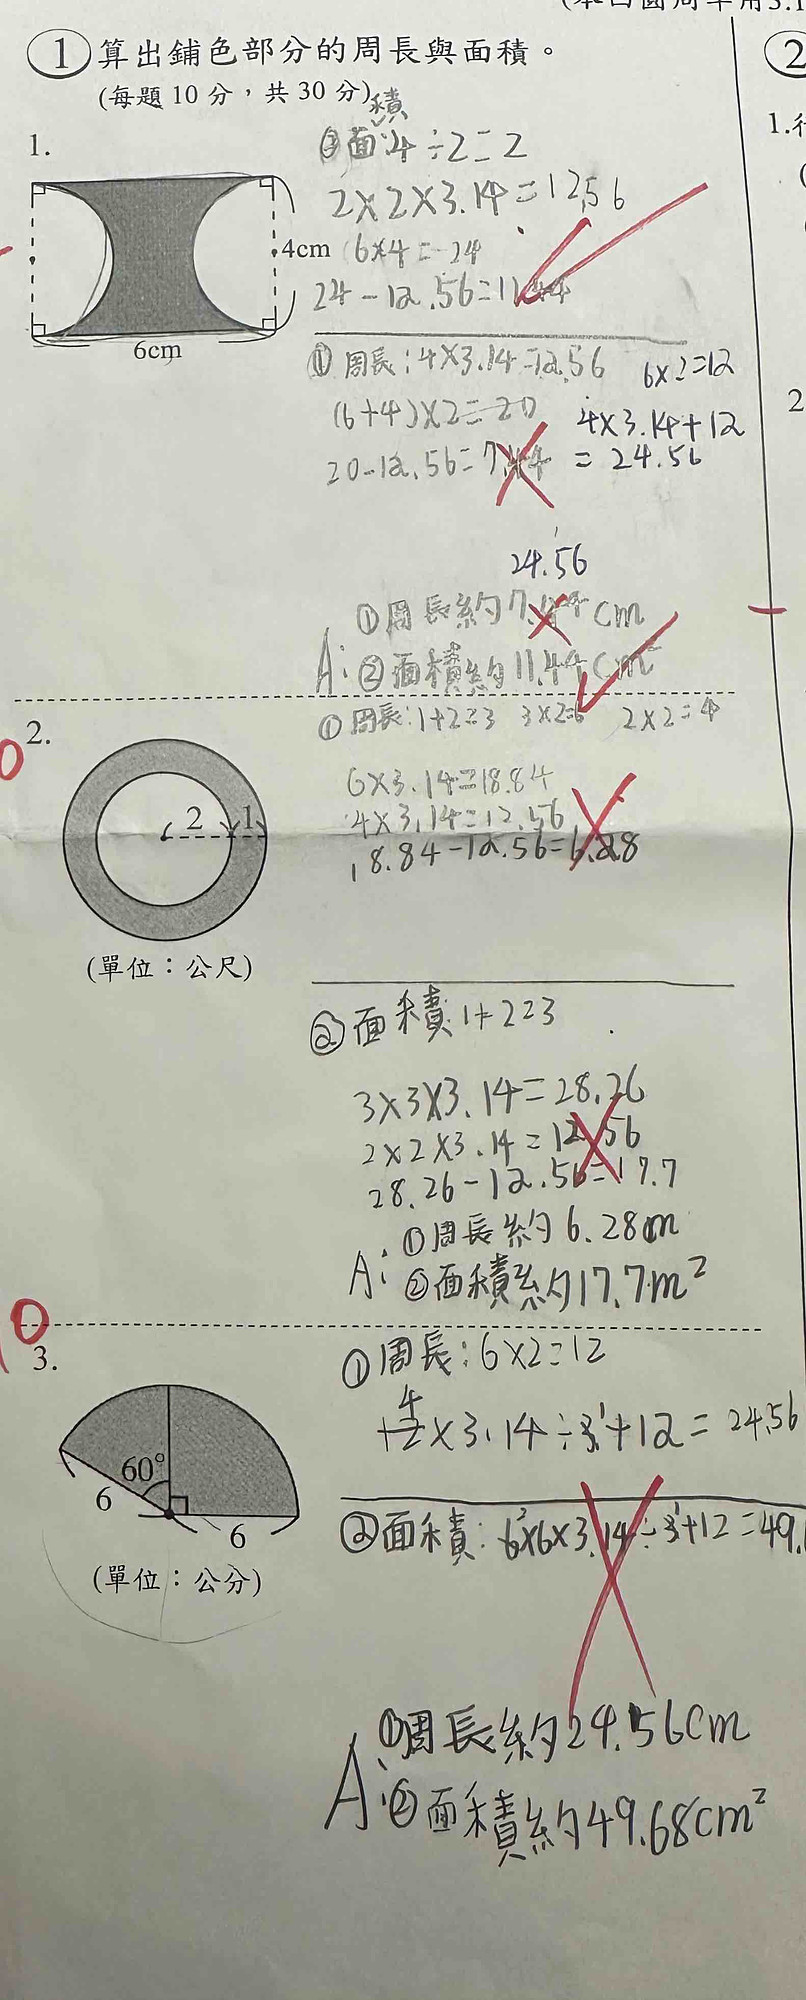 ① 算出鋪色部分的周長與面積。
(每題 10 分，共 30 分)
②
1.
4cm
6cm
②面積:4÷2=2
2×2×3.14=12.56
6×4=24
24-12.56=11.44
①周長:4×3.14=12.56
6×2=12
(6+4)×2=20
4×3.14+12
20-12.56=7.44
= 24.56
24.56
①周長約7.44cm
A:②面積約11.44cm²
2.
2
1
(單位：公尺)
①周長:1+2=3 3×2=6 2×2=4
6×3.14=18.84
4×3.14=12.56
18.84-12.56=6.28
②面積:1+2=3
3×3×3.14=28.26
2×2×3.14=12.56
28.26-12.56=17.7
①周長約6.28m
A:②面積約17.7m²
3.
60°
6
6
(單位：公分)
①周長:6×2=12
4
12×3.14÷3+12=24.56
②面積:6×6×3.14÷3+12=49.
①周長約24.56cm
A:②面積約49.68cm²
1.
2